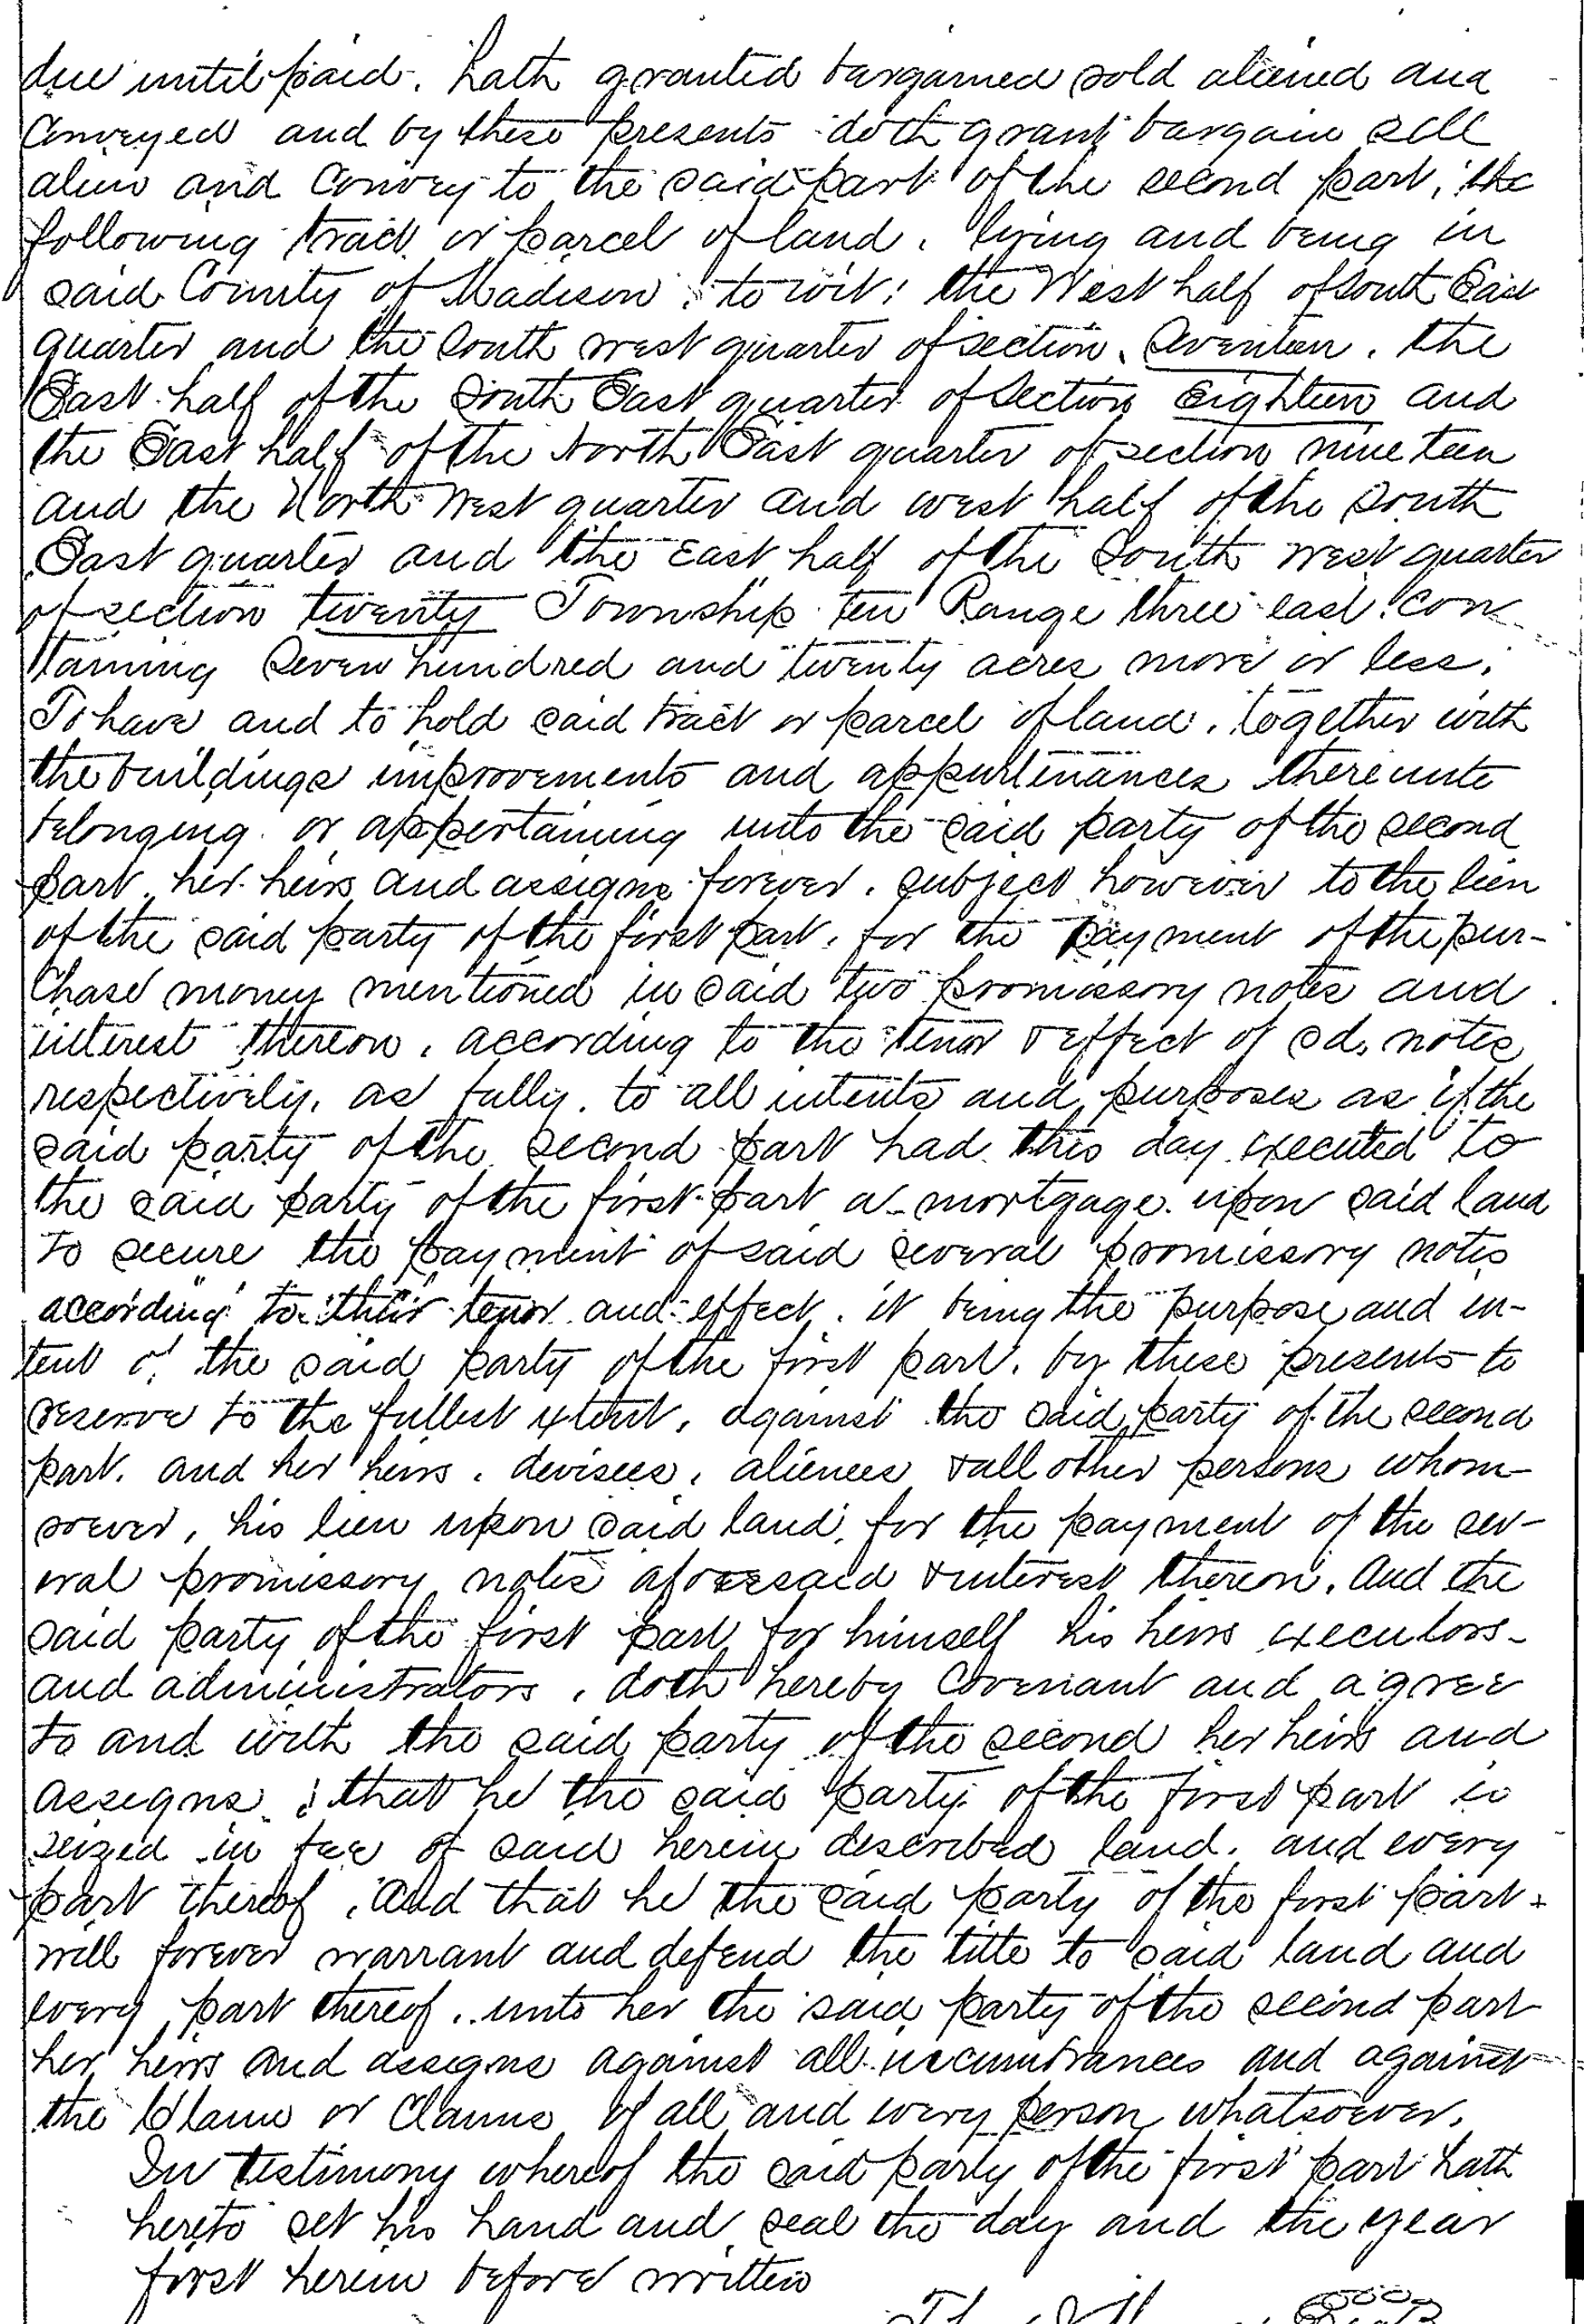 due until paid. hath granted bargained sold aliened and
Conveyed and by these presents doth grant bargain sell
alien and Convey to the said part of the second part, the
following tract or parcel of land, lying and being in
said County of Madison, to wit: the West half of South East
quarter and the South west quarter of section Seventeen, the
East half of the South East quarter of Section Eighteen and
the East half of the North East quarter of section nineteen
and the North West quarter and west half of the South
East quarter and the East half of the South west quarter
of section twenty Township ten Range three east. Con
taining Seven hundred and twenty acres more or less.
To have and to hold said tract or parcel of land, together with
the buildings improvements and appurtenances thereunto
belonging or appertaining unto the said party of the second
part her heirs and assigns forever, subject however to the lien
of the said party of the first part, for the payment of the pur-
chase money mentioned in said two promissory notes and
interest thereon, according to the tenor & effect of sd. notes
respectively, as fully to all intents and purposes as if the
said party of the second part had this day executed to
the said party of the first part a mortgage upon said land
to secure the payment of said several promissory notes
according to their tenor and effect, it being the purpose and in-
tent of the said party of the first part, by these presents to
reserve to the fullest extent, against the said party of the second
part, and her heirs, devisees, alienees & all other persons whom-
soever, his lien upon said land, for the payment of the sev-
eral promissory notes aforesaid & interest thereon. And the
said party of the first part for himself his heirs executors
and administrators, doth hereby Covenant and agree
to and with the said party of the second her heirs and
assigns; that he the said party of the first part is
seized in fee of said herein described land, and every
part thereof, And that he the said party of the first part
will forever warrant and defend the title to said land and
every part thereof, unto her the said party of the second part
her heirs and assigns against all incumbrances and against
the Claim or Claims of all and every person whatsoever.
In testimony whereof the said party of the first part hath
hereto set his hand and seal the day and the year
first herein before written